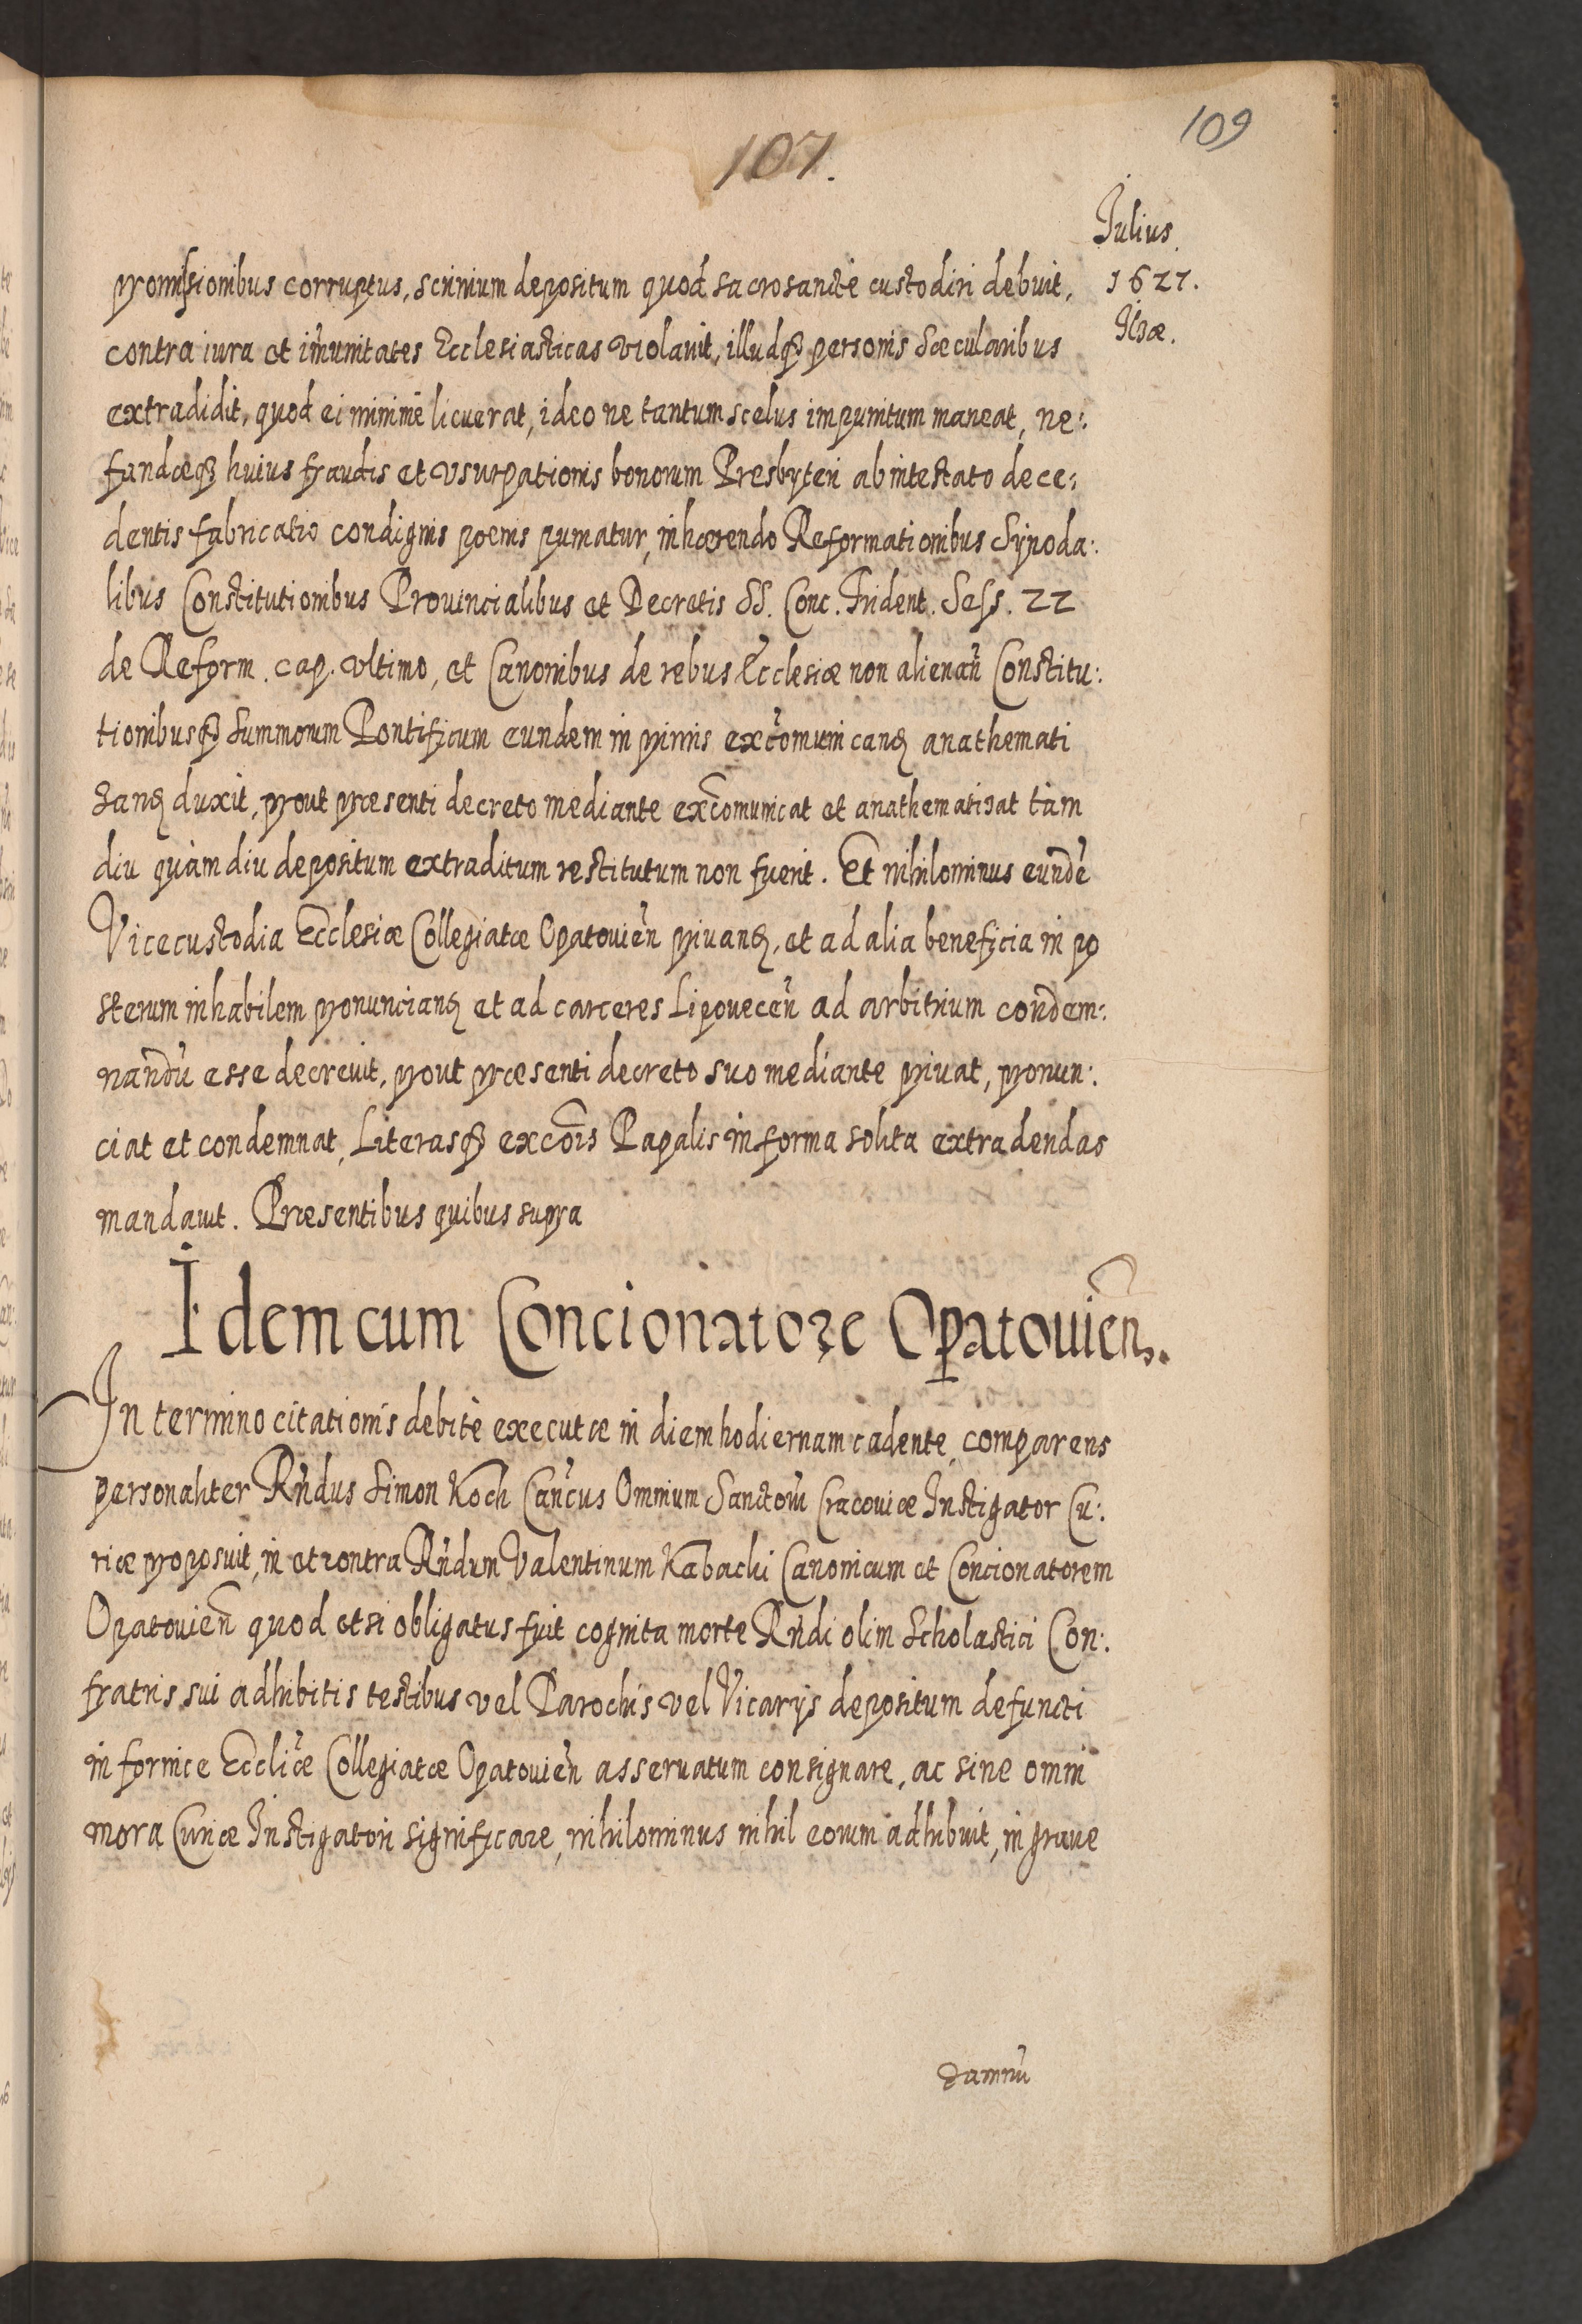 109
107.
Iulius
1621.
Ilzæ.
promissionibus corruptus, scrinium depositum quod sacrosanctè custodiri debuit,
contra iura et im̃unitates Ecclesiasticas violavit, illudq̃ꝫ personis Sæcularibus
extradidit, quod ei minimè licuerat, ideo ne tantum scelus impunitum maneat, ne:
fandæqꝫ huius fraudis et vsurpationis bonorum Presbyteri ab intestato dece:
dentis fabricatio condignis poenis puniatur, inhærendo Reformationibus Synoda:
libus Constitutionibus Prouincialibus et Decretis SS. Conc. Trident. Sess. 22
de Reform. cap. vltimo, et Canonibus de rebus Ecclesiæ non alienañ Constitu:
tionibusqꝫ Summorum Pontificum eundem in primis exc̃omunicanꝫ anathemati
zanꝫ duxit, prout præsenti decreto mediante exc̃omunicat et anathematizat tàm
diu quàm diu depositum extraditum restitutum non fuerit. Et nihilominus eundẽ
Vicecustodia Ecclesiæ Collegiatæ Opatouieñ priuanꝫ, et ad alia beneficia in po
sterum inhabilem pronuncianꝫ et ad carceres Lipoueceñ ad arbitrium condem:
nandũ esse decreuit, prout præsenti decreto suo mediante priuat, pronun:
ciat et condemnat, Literasqꝫ excõis Papalis in forma solita extradendas
mandauit. Præsentibus quibus supra
Idem cum Concionatore Opatouieñ.
In termino citationis debitè executæ in diem hodiernam cadente, comparens
personaliter Rñdus Simon Koch Cañcus Omnium Sanctorũ Cracouiæ Instigator Cu:
riæ proposuit, in et contra Rñdum Valentinum Kabachi Canonicum et Concionatorem
Opatouieñ quod etsi obligatus fuit cognita morte Rñdi olim Scholastici Con:
fratris sui adhibitis testibus vel Parochis vel Vicarijs depositum defuncti
in fornice Eccliæ Collegiatæ Opatouieñ asseruatum consignare, ac sine omni
mora Curiæ Instigatori significare, nihilominus nihil eorum adhibuit, in graue
damnũ